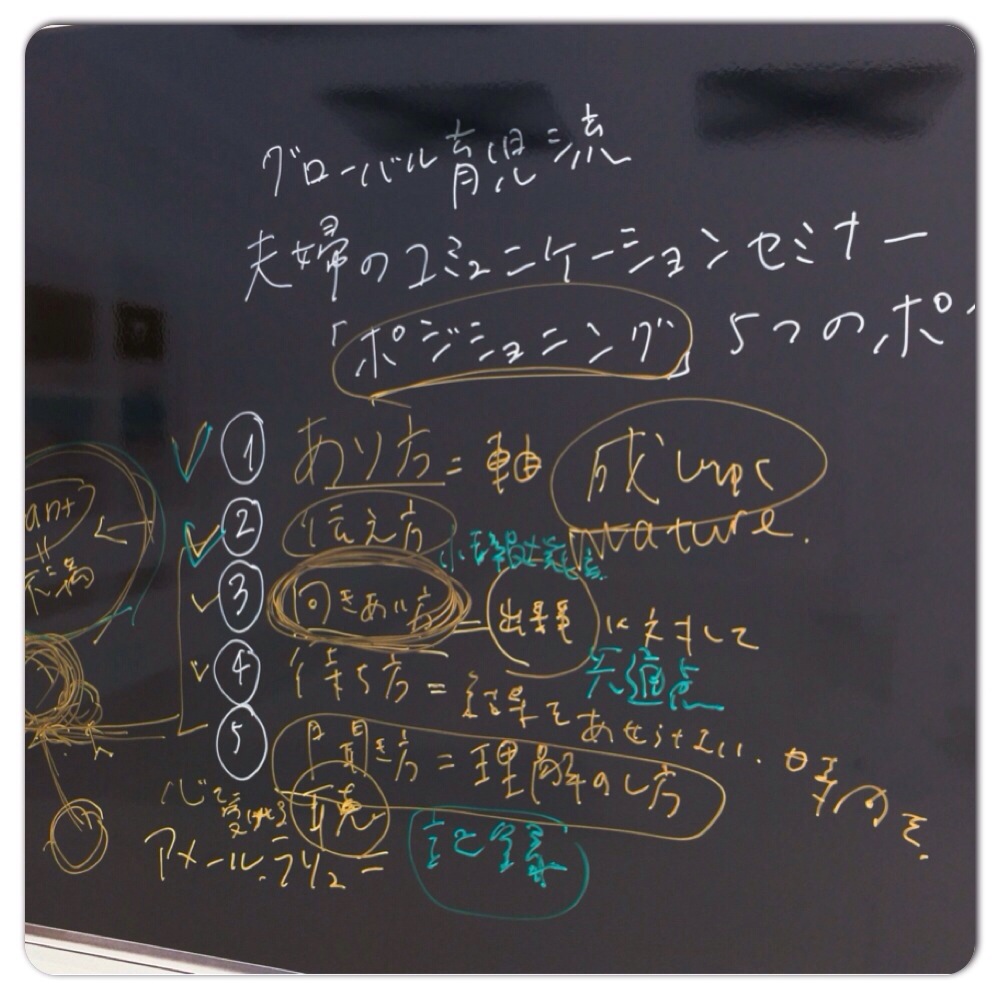 グローバル育児流
夫婦のコミュニケーションセミナー
「ポジショニング」5つのポ
① あり方=軸 成
② 伝え方
mature.
③ 向きあい方 - 出来事 に対して
共通点
④ 待ち方=結果をあせらない.
⑤ 聞き方=理解のし方
心で受ける 聴
アメールラリュー
記録